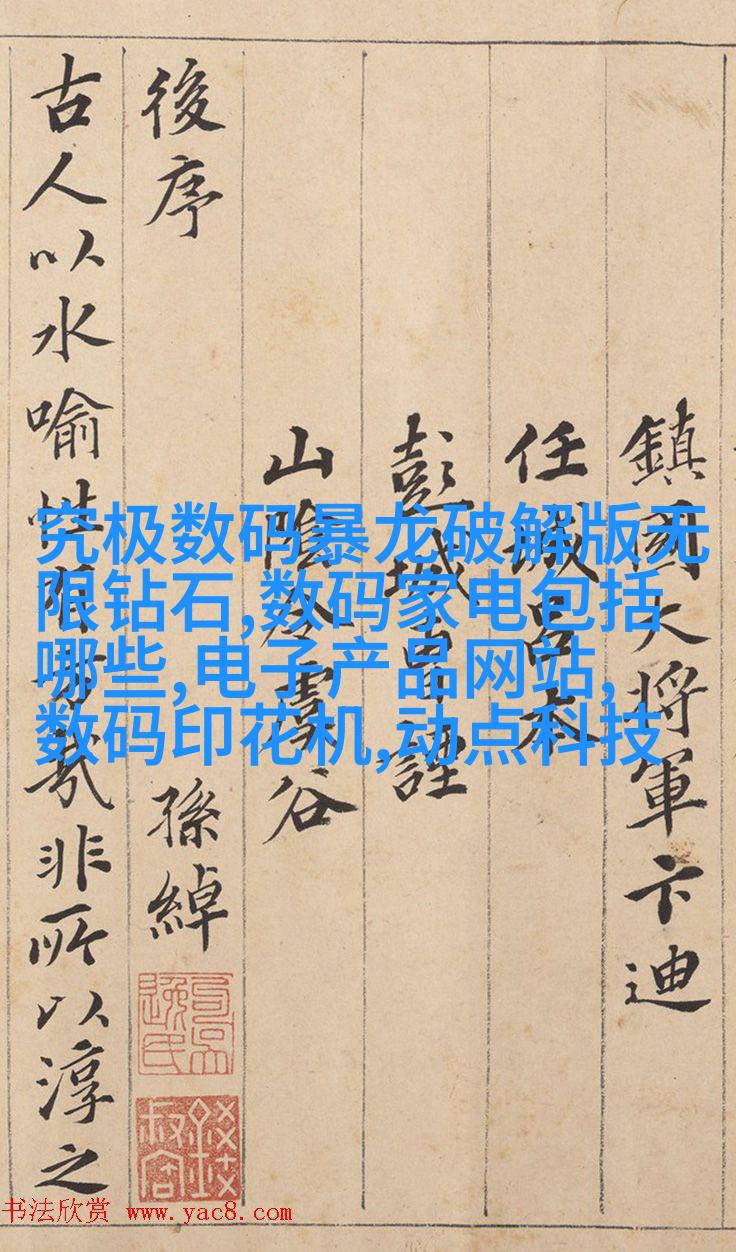 鎮國大將軍卞迪
任城呂本
彭城曹諲
山陰虞谷
後序
孫綽
古人以水喻性有旨哉非所以淳之
究极数码暴龙破解版无
限钻石,数码家电包括
哪些,电子产品网站,
数码印花机,动点科技
书法欣赏 www.yac8.com